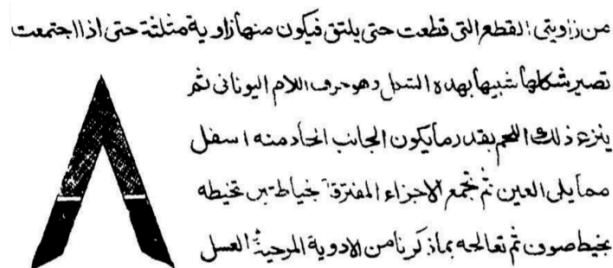 من زاويتى القطع التى قطعت حتى يلتق فيكون منها زاوية مثلثة حتى اذا اجتمعت
تصير شكلها شبيها بهذه الشكل وهو حرف اللام اليونانى ثم
ينزع ذلك اللحم بقدر ما يكون الجانب الحاد منه اسفل
مما يلى العين ثم تجمع الاجزاء المفترقة بخياطتين تخيطه
بخيط صوف ثم تعالجه بما ذكرنا من الادوية المرخية العسل